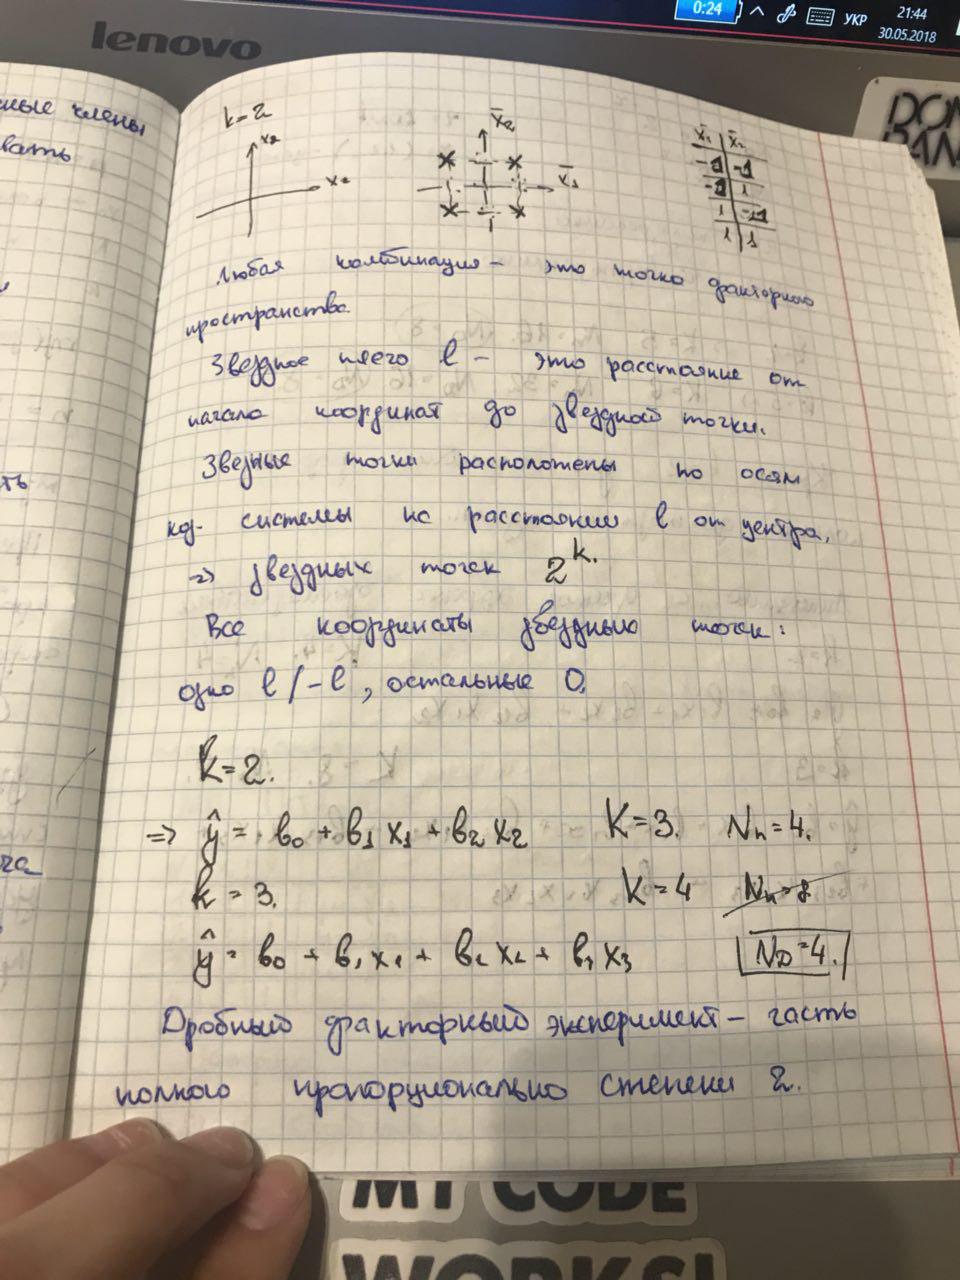 0:24
УКР
21:44
30.05.2018
lenovo
члены
вать
k=2
x2
x2
x̄2
x̄1
x̄1 x̄2
-1 -1
-1 1
1 -1
1 1
Любая комбинация - это точка факторного
пространства.
Звездное плечо l - это расстояние от
начала координат до звездной точки.
Звезные точки расположены по осям
кд. системы на расстоянии l от центра.
=> звездных точек 2^k.
Все координаты звездных точек:
одно l/-l, остальные 0.
k=2.
=> ŷ = b0 + b1 x1 + b2 x2 K=3. Nп=4.
k=3. K=4 Nп=8
ŷ = b0 + b1 x1 + b2 x2 + b3 x3 ND=4.
Дробный факторный эксперимент - часть
полного пропорционально степени 2.
MY CODE
WORKS!